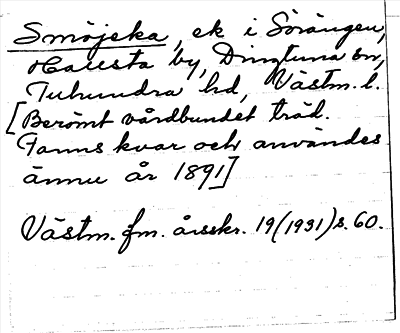 Smöjeka, ek i Sörängen,
Hallsta by, Dingtuna sn,
Tuhundra hd, Västm. l.
[Berömt vårdbundet träd.
Fanns kvar och användes
ännu år 1891]
Västm. fm. årsskr. 19 (1931) s. 60.